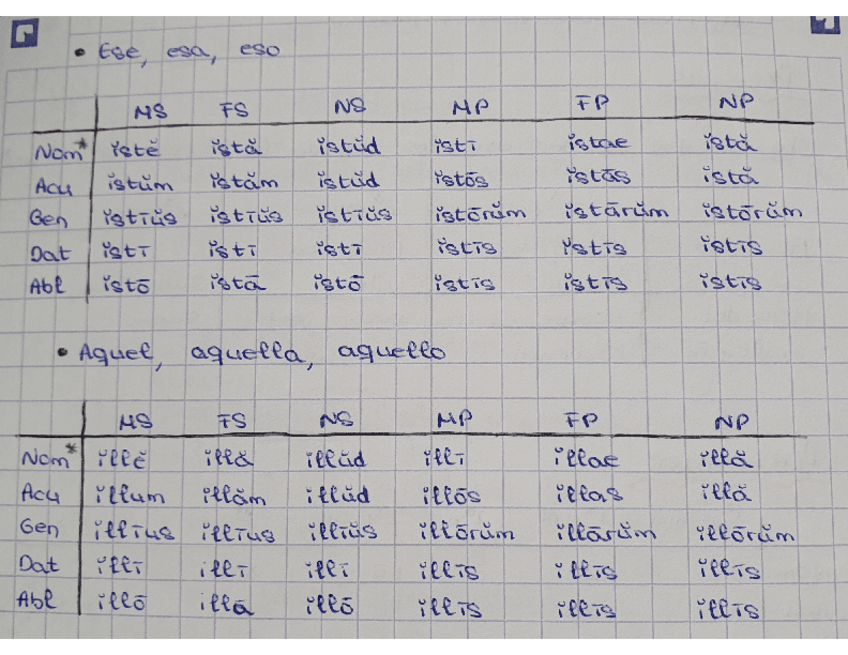 • Ese, esa, eso
MS FS NS MP FP NP
Nom* ĭstĕ ĭstă ĭstŭd ĭstī ĭstae ĭstă
Acu ĭstŭm ĭstăm ĭstŭd ĭstōs ĭstās ĭstă
Gen ĭstīŭs ĭstīŭs ĭstīŭs ĭstōrŭm ĭstārŭm ĭstōrŭm
Dat ĭstī ĭstī ĭstī ĭstīs ĭstīs ĭstīs
Abl ĭstō ĭstā ĭstō ĭstīs ĭstīs ĭstīs
• Aquel, aquella, aquello
MS FS NS MP FP NP
Nom* ĭllĕ ĭllă ĭllŭd ĭllī ĭllae ĭllă
Acu ĭllum ĭllăm ĭllŭd ĭllōs ĭllas ĭllă
Gen ĭllīus ĭllīus ĭllīŭs ĭllōrŭm ĭllārŭm ĭllōrŭm
Dat ĭllī ĭllī ĭllī ĭllīs ĭllīs ĭllīs
Abl ĭllō ĭllā ĭllō ĭllīs ĭllīs ĭllīs